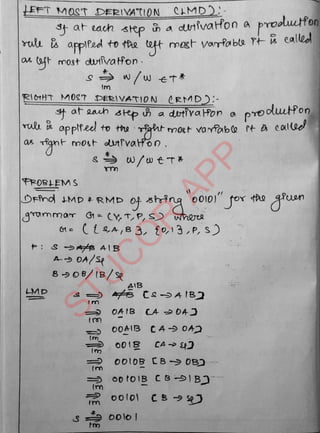 LEFT MOST DERIVATION (LMD):-
If at each step in a derivation a production
rule is applied to the left most variable it is called
as left most derivation.
S ⇒* W / W ∈ T*
lm
RIGHT MOST DERIVATION (RMD):-
If at each step in a derivation a production
rule is applied to the right most variable it is called
as right most derivation.
S ⇒* W / W ∈ T*
rm
PROBLEMS
① Find LMD & RMD of string "00101" for the given
grammar G = (V, T, P, S) where
G = ( { S, A, B }, { 0, 1 }, P, S )
P: S → A1B
A → 0A/ε
B → 0B/1B/ε
LMD S ⇒ A1B [S → A1B]
lm
⇒ 0A1B [A → 0A]
lm
⇒ 00A1B [A → 0A]
lm
⇒ 001B [A → ε]
lm
⇒ 0010B [B → 0B]
lm
⇒ 00101B [B → 1B]
lm
⇒ 00101 [B → ε]
lm
S ⇒* 00101
lm
STUCOR APP